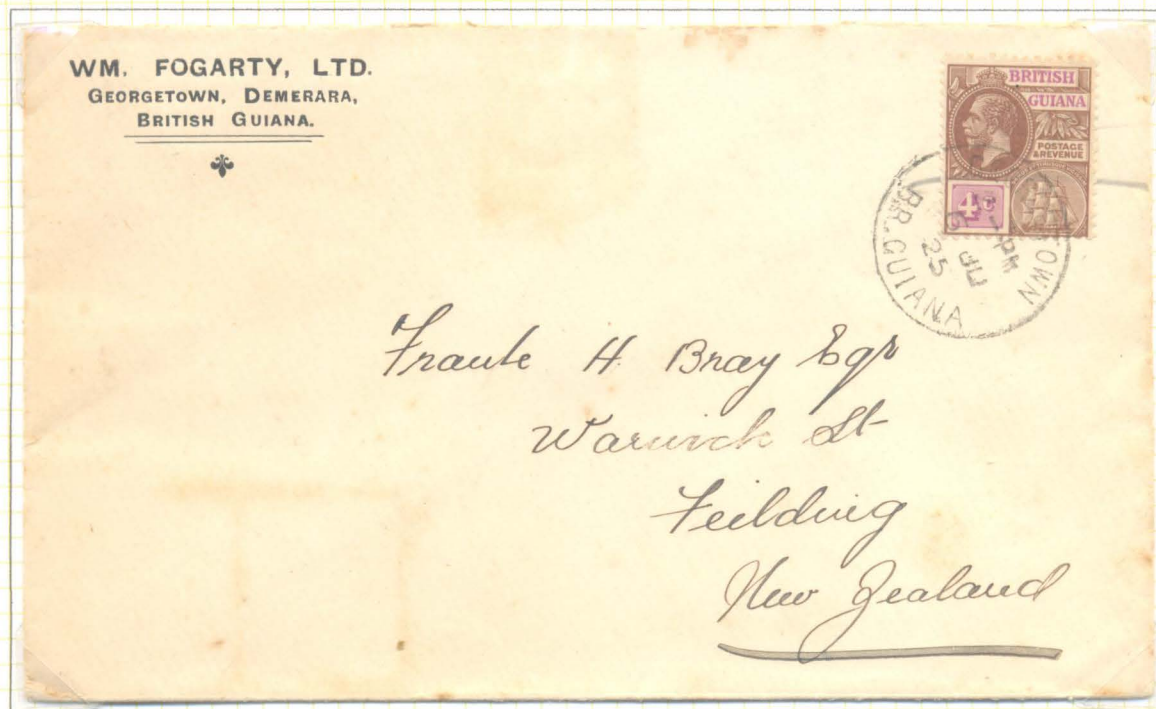 WM. FOGARTY, LTD.
GEORGETOWN, DEMERARA,
BRITISH GUIANA.
BRITISH
GUIANA
POSTAGE
& REVENUE
4c
TOWN
PM
JL
25
BR. GUIANA
Frank H Bray Esqr
Warwick St
Feilding
New Zealand